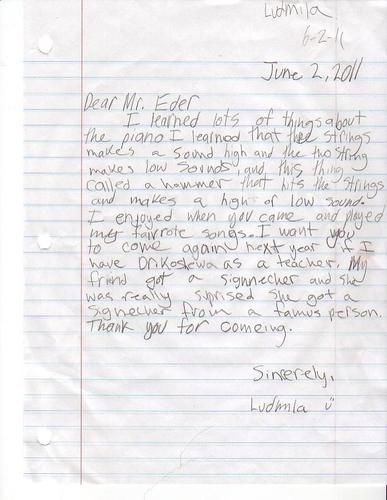 Ludmila
6-2-11
June 2, 2011
Dear Mr. Eder
I learned lots of things about
the piano I learned that the strings
makes a sound high and the two string
makes low sounds, and this thing
called a hammer that hits the strings
and makes a high of low sound.
I enjoyed when you came and played
my fairrote songs. I want you
to come again next year if I
have Dr.Kostewa as a teacher. My
friend got a signnecher and she
was really suprised she got a
signecher from a famus person.
Thank you for comeing.
Sinrerely,
Ludmila